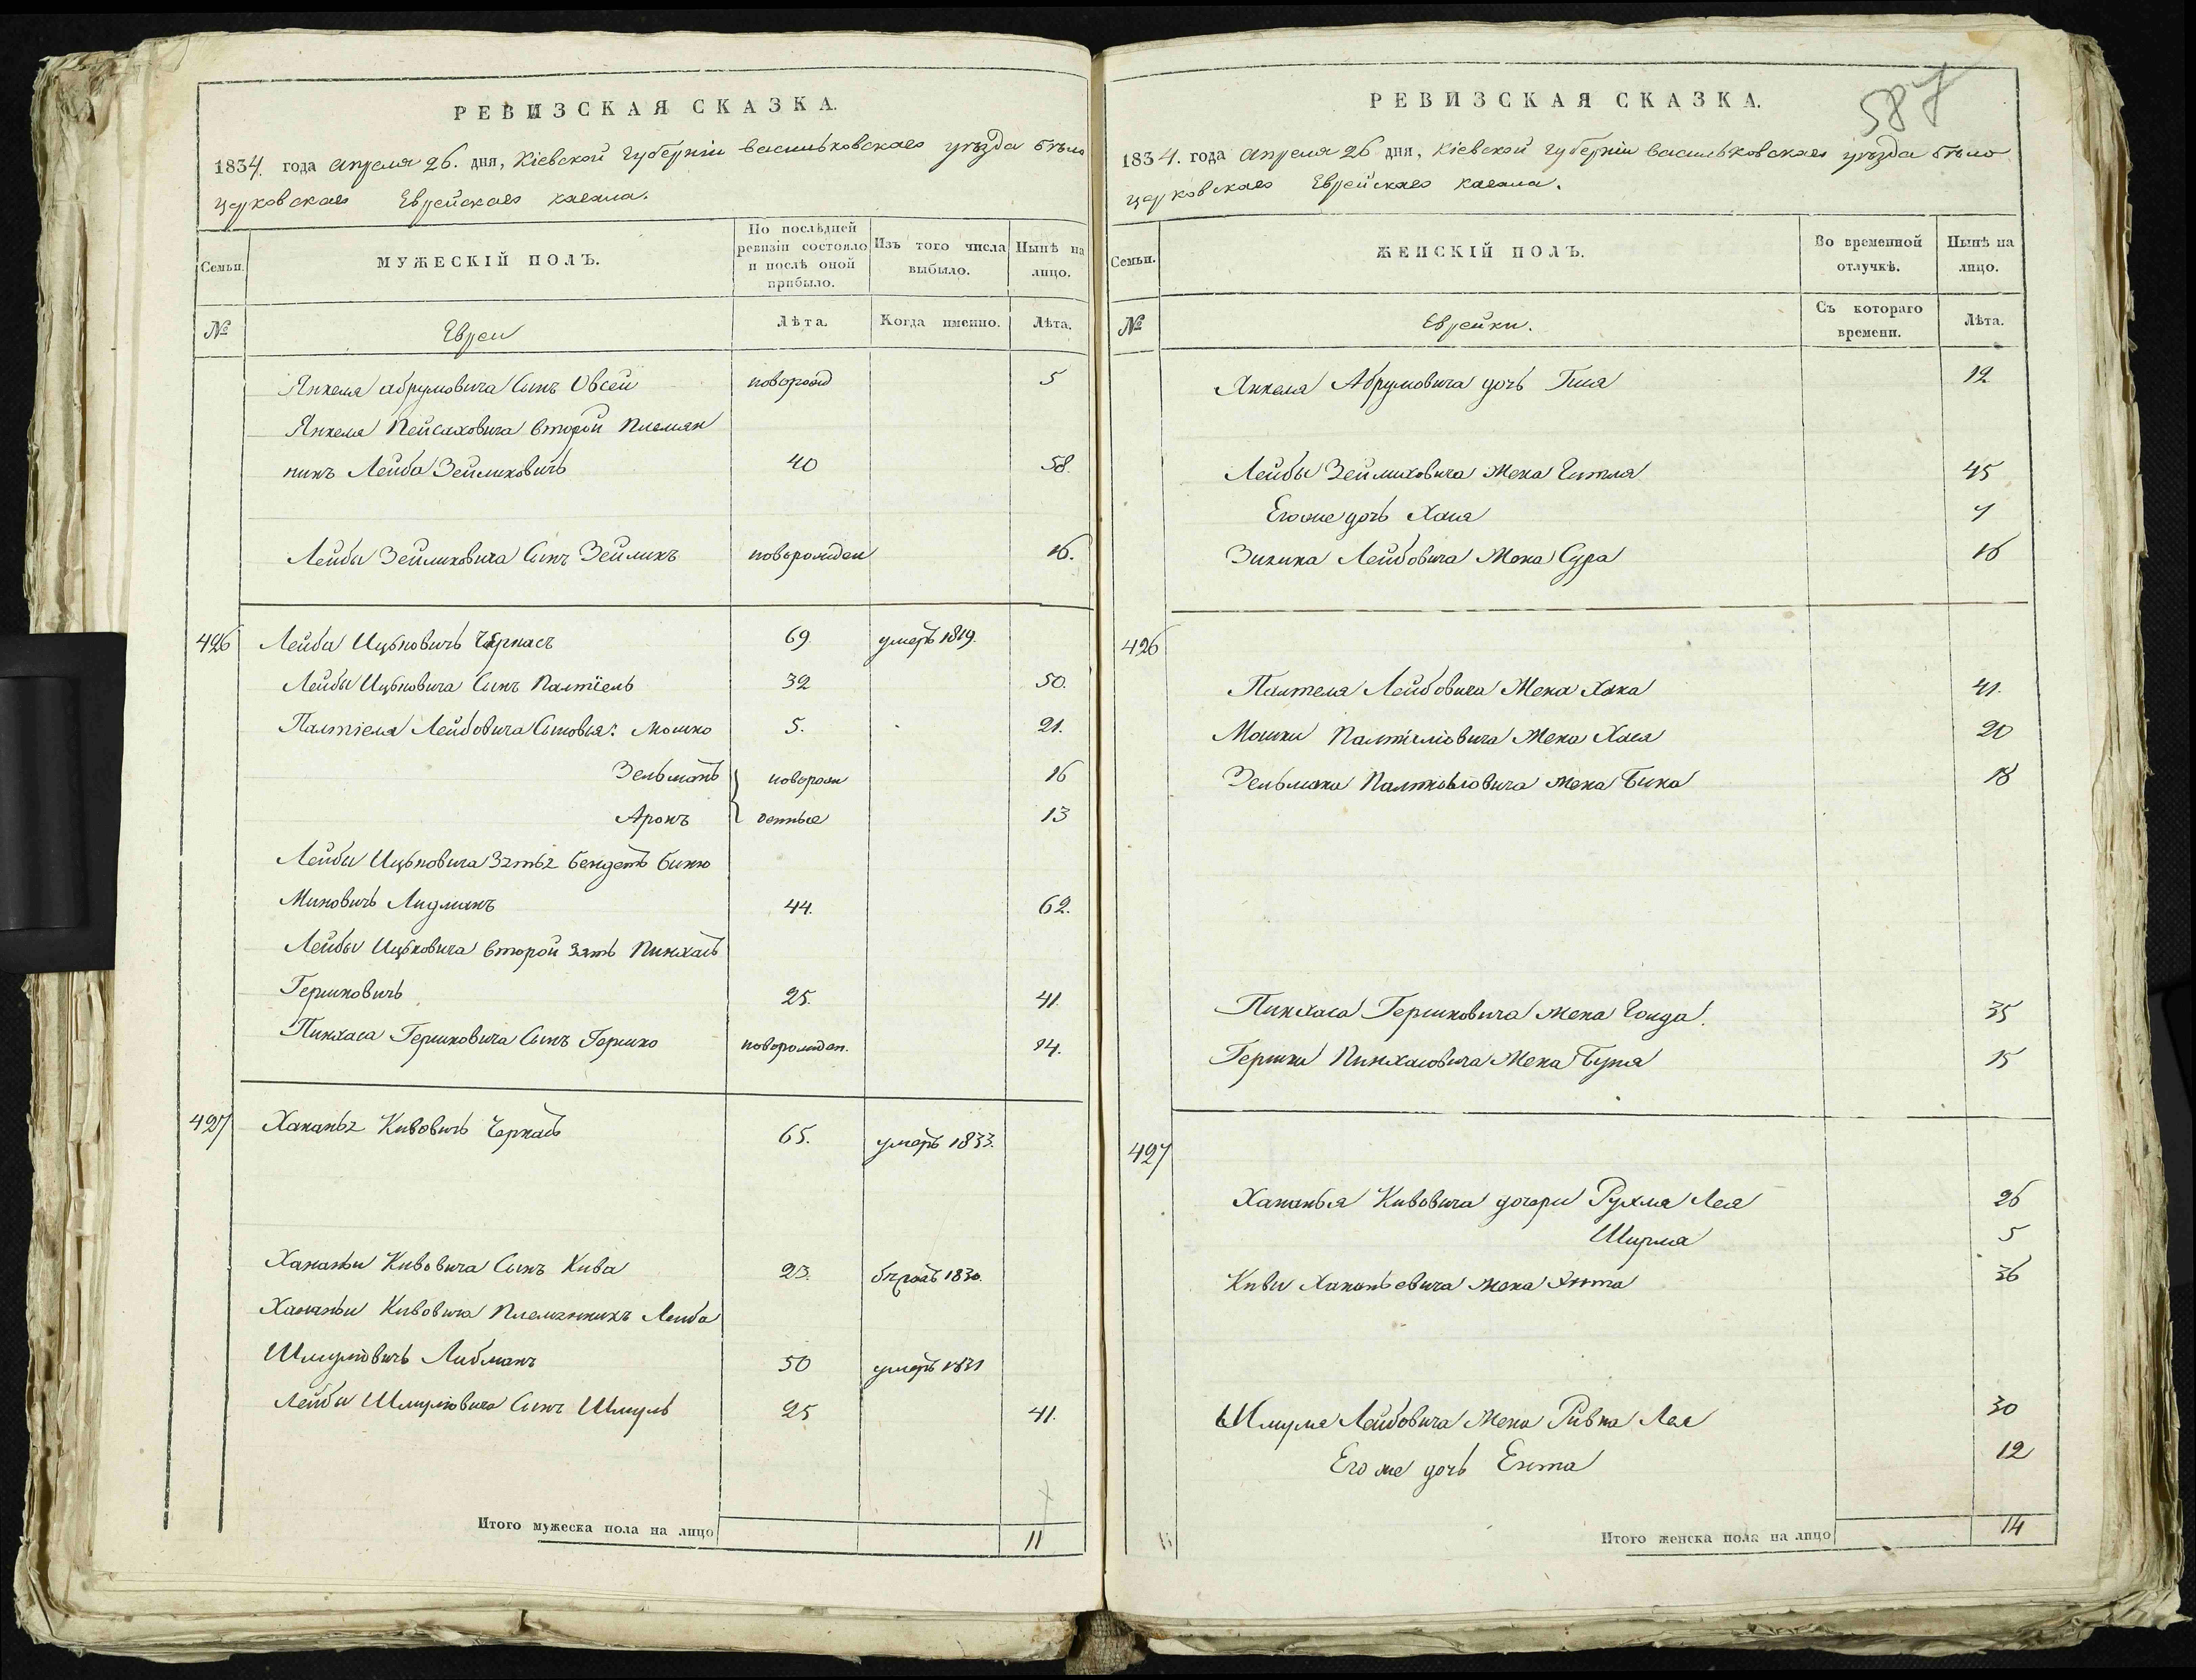 РЕВИЗСКАЯ СКАЗКА.
1834. года апреля 26. дня, Кіевской губерніи васильковскаго уѣзда бѣло
церковскаго Еврейскаго кагала.
Семьи.
МУЖЕСКІЙ ПОЛЪ.
По послѣдней ревизіи состояло и послѣ оной прибыло.
Изъ того числа выбыло.
Нынѣ на лицо.
№
Евреи
Лѣта.
Когда именно.
Лѣта.
Янкеля абрумовича Сынъ Овсей новорожд 5
Янкеля Пейсаховича второй Племян
никъ Лейба Зейликовичъ 40 58.
Лейбы Зейликовича Сынъ Зейликъ новорожден 16.
426 Лейба Ицьковичъ Черкасъ 69. умеръ 1819.
Лейбы Ицьковича Сынъ Палтіель 32 50.
Палтіеля Лейбовича Сыновья: Мошко 5. 21.
Зельманъ новорож 16
Аронъ денные 13
Лейбы Ицьковича Зять Бендетъ Биню
Миновичъ Лидманъ 44. 62.
Лейбы Ицьковича второй зять Пинхасъ
Гершковичъ 25. 41.
Пинхаса Гершковича Сынъ Гершко новорожден. 14.
427 Хананья Кивовичъ Черкасъ 65. умеръ 1833.
Хананьи Кивовича Сынъ Кива 23. 1830.
Хананьи Кивовича Племянникъ Лейба
Шмуловичъ Либманъ 50 умеръ 1831
Лейбы Шмуловича Сынъ Шмуль 25 41.
Итого мужеска пола на лицо 11
587
РЕВИЗСКАЯ СКАЗКА.
1834. года апреля 26 дня, Кіевской губерніи васильковскаго уѣзда бѣло
церковскаго Еврейскаго кагала.
Семьи.
ЖЕНСКІЙ ПОЛЪ.
Во временной отлучкѣ.
Нынѣ на лицо.
№
Еврейки.
Съ котораго времени.
Лѣта.
Янкеля Абрумовича дочь 12
Лейбы Зейликовича Жена Гитля 45
Его же дочь Хая 7
Зилика Лейбовича Жена Сура 16
426
Палтеля Лейбовича Жена Хака 41.
Мошки Палтіеліовича Жена Хая 20
Зельмана Палтіовловича Жена Бика 18
Пинхаса Гершковича жена Голда. 35
Гершки Пинхасовича Жена Буня 15
427
Хананья Кивовича дочери Рухля Лея 26
Ширля 5
Кивы Хананьевича жена Энта 36
Шмуля Лейбовича Жена Ривка Лея 30
Его же дочь Ента 12
Итого женска пола на лицо 14